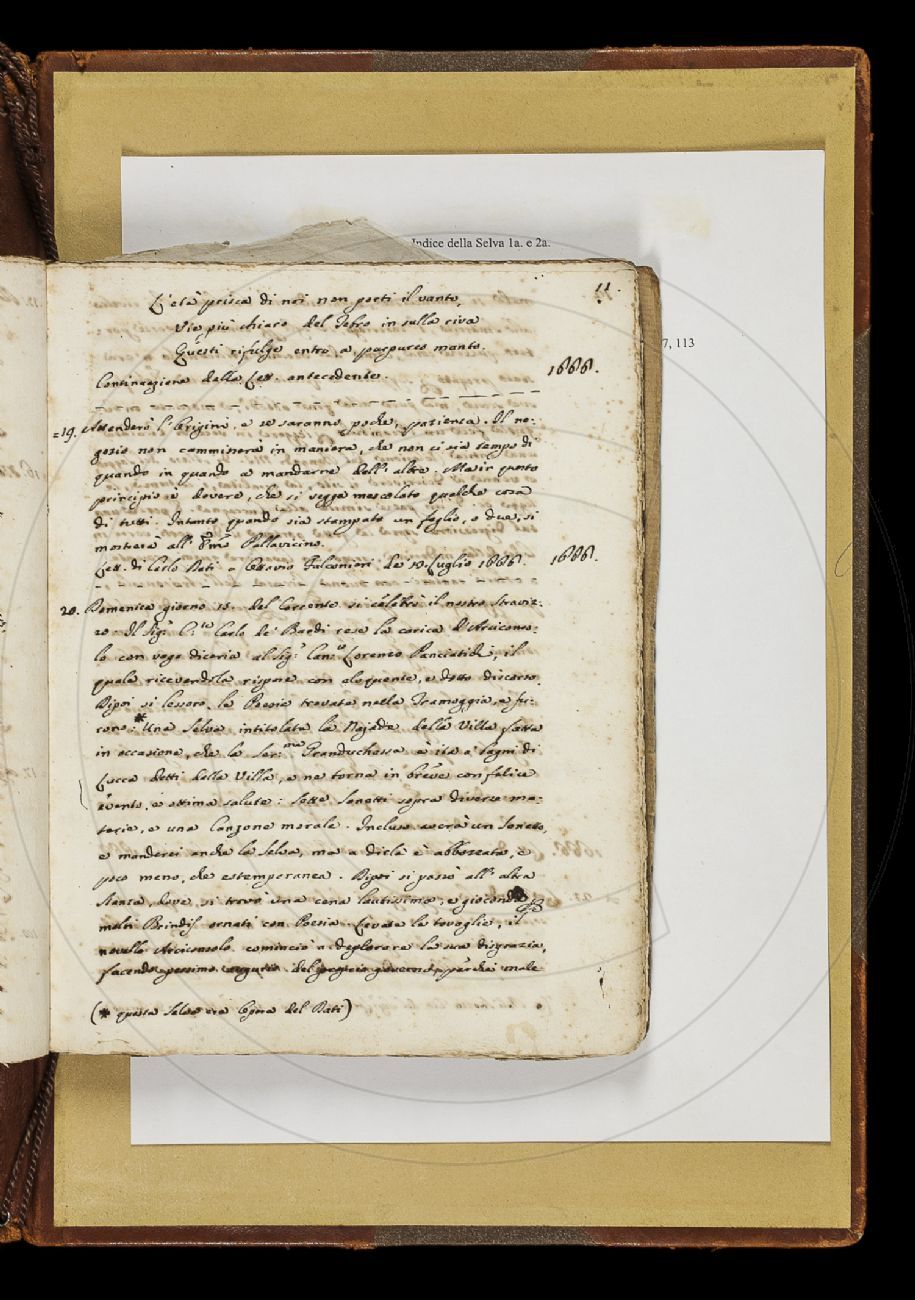 Indice della Selva 1a. e 2a.
7, 113
11.
L'età prisca di noi non porti il vanto,
Via più chiaro del Tebro in sulla riva
Questi rifulge entro a purpureo manto.
Continuazione della Lett. antecedente.
1666.
=19. Attenderò l'Origini, e se saranno poche, pazienza. Il ne-
gozio non camminerà in maniera, che non ci sia tempo di
quando in quando a mandarne dell'altre. Ma in questo
principio è dovere, che si vegga mescolato qualche cosa
di tutti. Intanto quando sia stampato un foglio, o due, si
mostrerà all' Pallavicino.
Lett. di Carlo Dati a Ottavio Falconieri de Luglio 1666.
1666.
20. Domenica giorno del Corrente si celebrò il nostro Straviz-
zo. Il Sig.r C.te Carlo de' Bardi rese la carica d'Arciconso-
lo con vaga diceria al Sig.r Can.co Lorenzo Panciatichi, il
quale ricevendola rispose con eloquente, e dotto discorso.
Dipoi si lessero le Poesie trovate nella Tramoggia, e fu-
rono: * Una Selva intitolata la Najade della Villa fatta
in occasione, che la Ser.ma Granduchessa è ita a' bagni di
Lucca detti della Villa, e ne torna in breve con felice
evento, e ottima salute: Sette Sonetti sopra diverse ma-
terie, e una Canzone morale. Incluso avrà un Sonetto,
e manderei anche la Selva, ma a dirla è abbozzata, e
poco meno, che estemporanea. Dipoi si passò all'altra
stanza, dove si trovò una cena lautissima, e gioconda
molti Brindisi ornati con Poesia. Levate le tovaglie, il
novello Arciconsolo cominciò a deplorare la sua disgrazia,
facendo pessimo augurio del proprio governo, perchè male
(* questa Selva era opera del Dati)